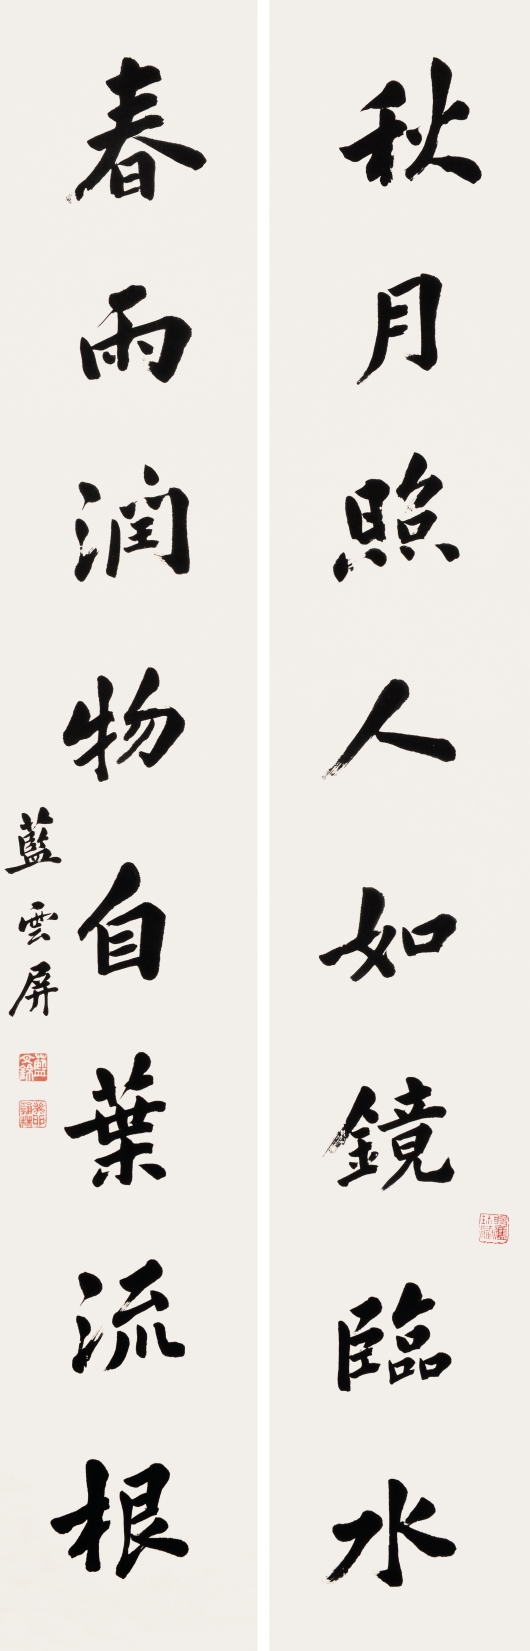 秋月照人如鏡臨水
春雨潤物自葉流根
藍雲屏